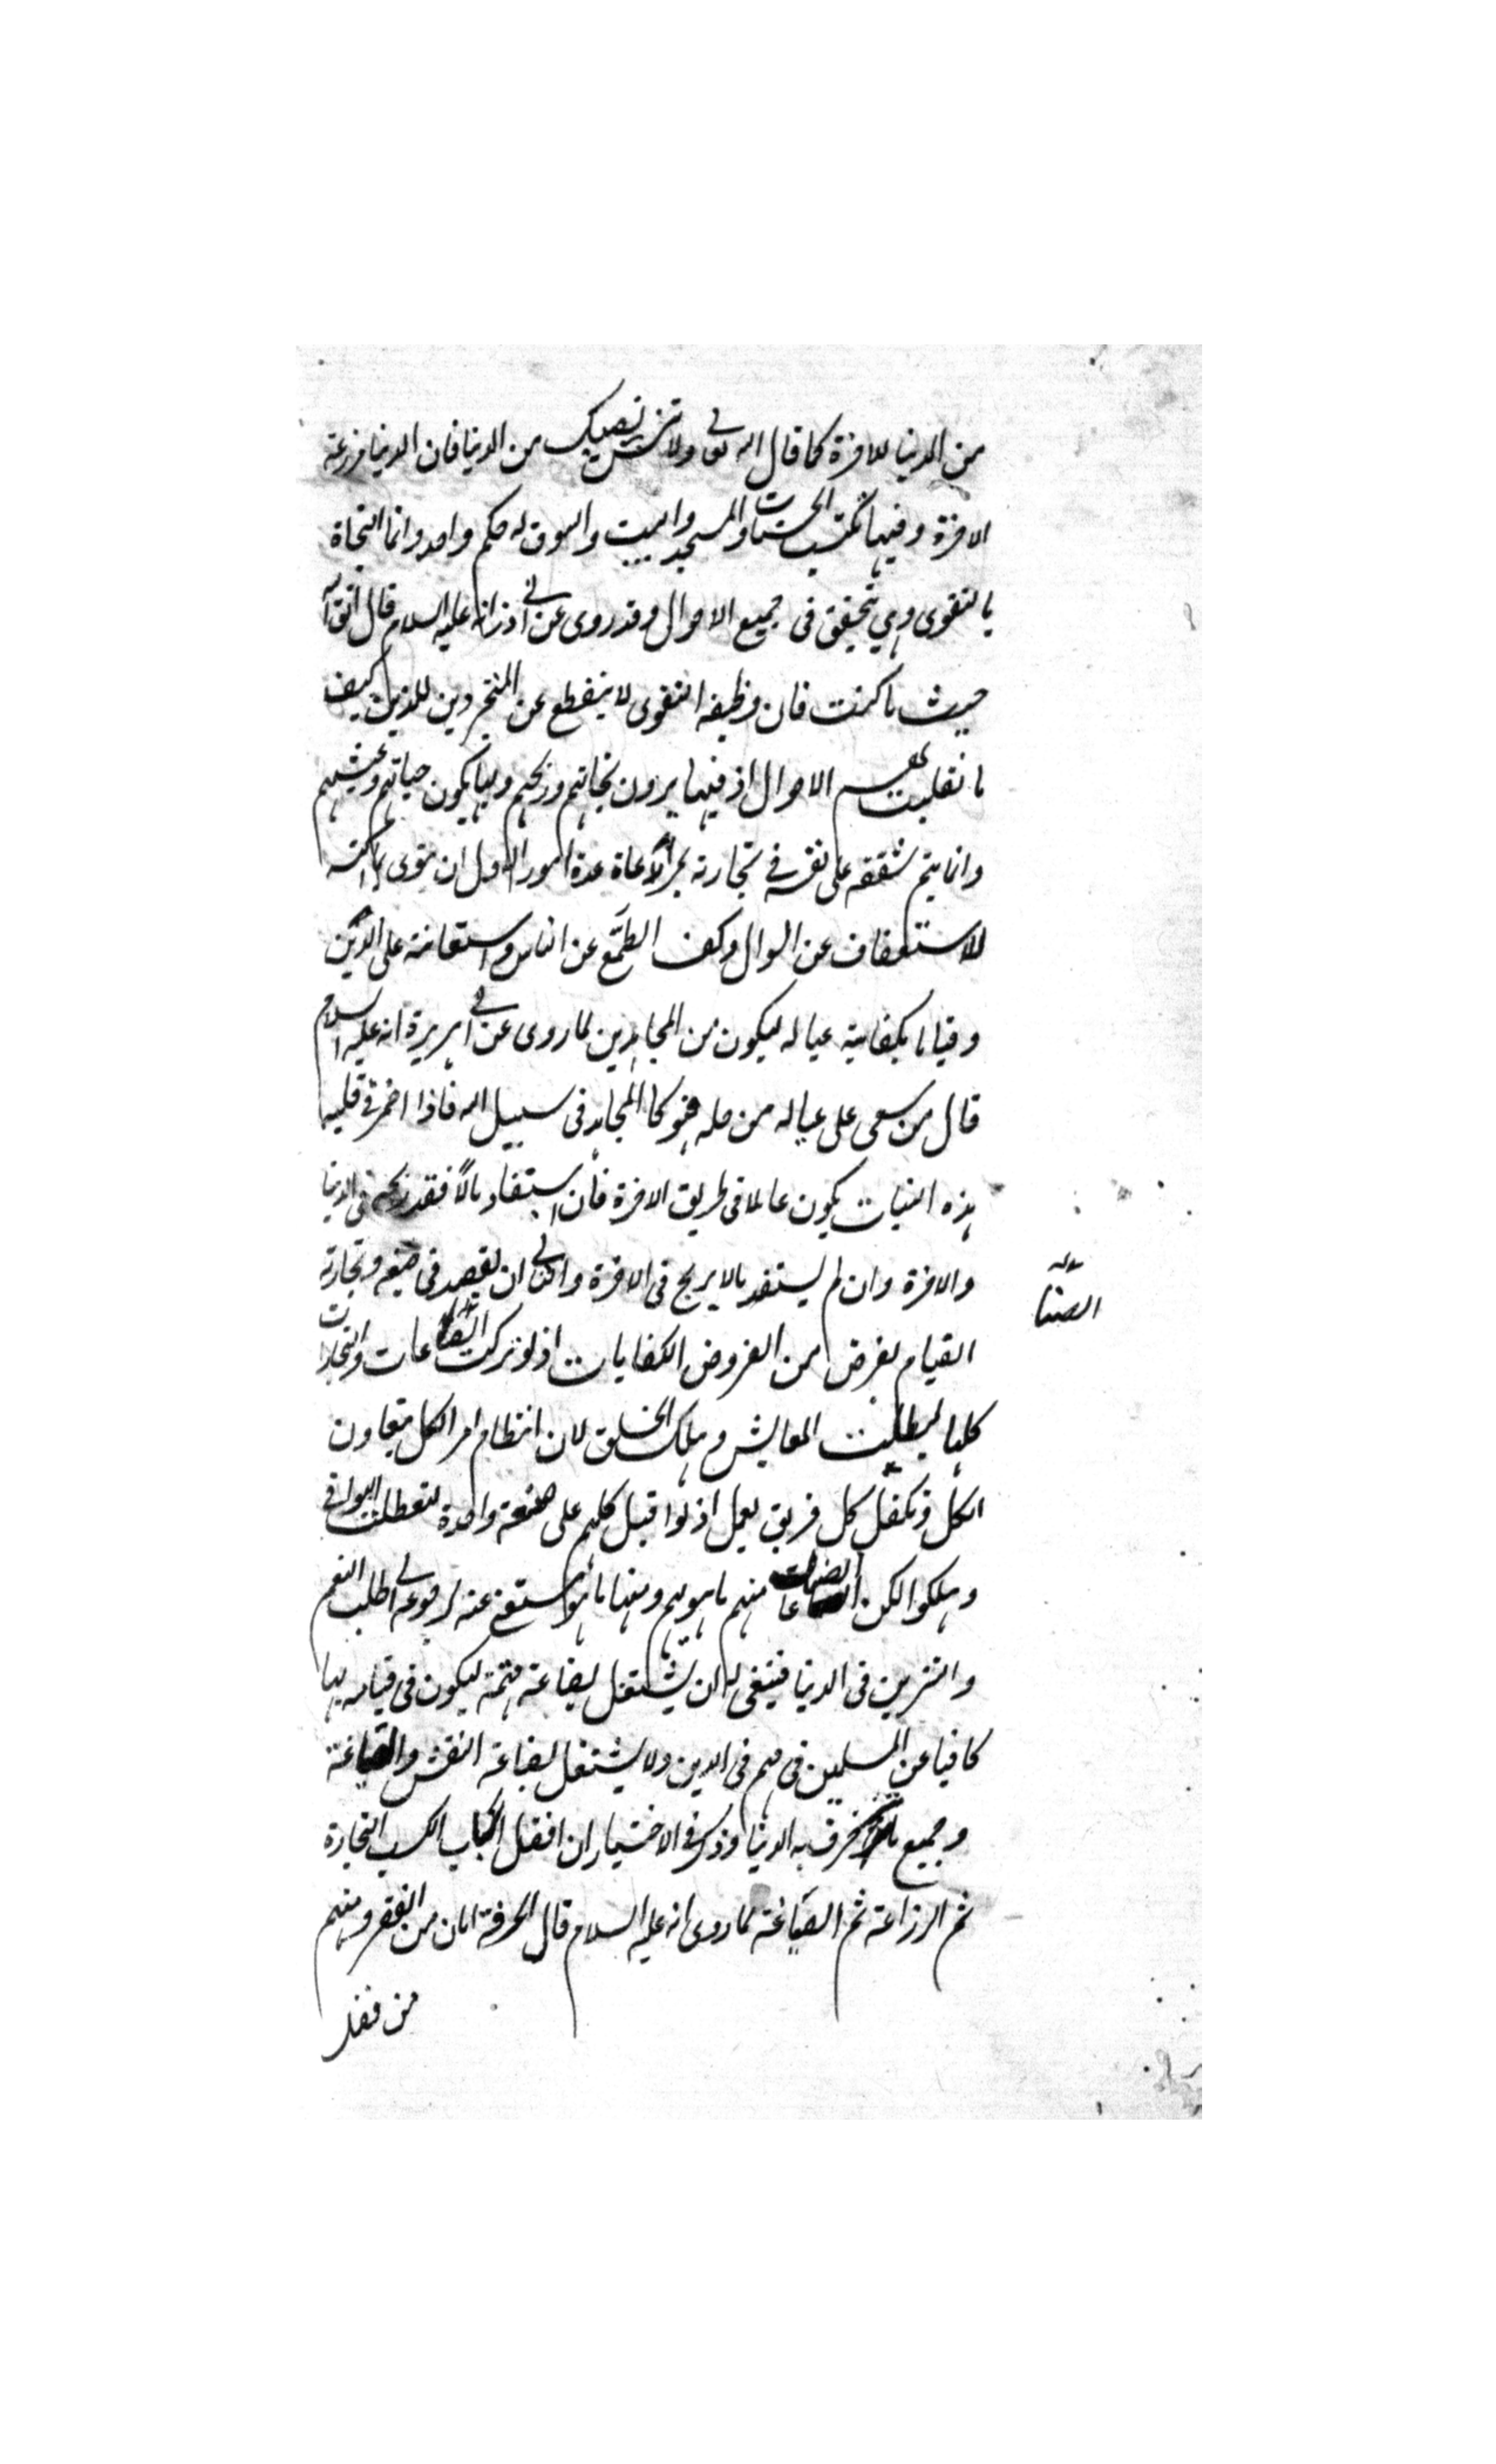 من الدنيا للاخرة كما قال الله تعالى ولا تنس نصيبك من الدنيا فان الدنيا مزرعة
الاخرة وفيها تكتسب الحسنات والمسجد والبيت والسوق له حكم واحد وانما النجاة
بالتقوى وهي تتحقق في جميع الاحوال وقد روى عن ابي ذر انه عليه السلام قال اتق الله
حيث ما كنت فان وظيفة التقوى لا ينقطع عن المتجردين للدين كيف
ما تقلبت بهم الاحوال اذ فيها يرون نجاتهم وربحهم وبها يكون حياتهم وعيشهم
وانما يتم شفقته على نفسه في تجارته بمراعاة عدة امور الاول ان ينوى بما كتسه
للاستعفاف عن السوال وكف الطمع عن الناس واستعانة على الدين
وقياما بكفاية عياله ليكون من المجاهدين لما روى عن ابي هريرة انه عليه السلام
قال من سعى على عياله من حله فهو كالمجاهد في سبيل الله فاذا اضمر في قلبه
هذه النيات يكون عاملا في طريق الاخرة فان استفاد مالا فقد ربح في الدنيا
والاخرة وان لم يستفد مالا يربح في الاخرة والثاني ان يقصد في صنعه وتجارته
الصنا
القيام بفرض من الفروض الكفايات اذ لو تركت الصناعات والتجارات
كلها لبطلت المعايش وهلك الخلق لان انتظام امر الكل بتعاون
الكل وتكفل كل فريق بعمل اذ لو اقبل كلهم على صنعة واحدة لتعطلت البواقي
وهلكوا لكن الصناعات منهم ما هو مهم ومنها ما هو استغنى عنه لرجوعه الى طلب التنعم
والتزين في الدنيا فينبغى له ان يشتغل بصناعة مهمة ليكون في قيامه بها
كافيا عن المسلمين في مهم في الدين ولا يشتغل بصناعة النقش والصياغة
وجميع ما تزخرف به الدنيا وذكر في الاختيار ان افضل اسباب الكسب التجارة
ثم الزراعة ثم الصناعة لما روى انه عليه السلام قال الحرفة امان من الفقر ومنهم
من فضل